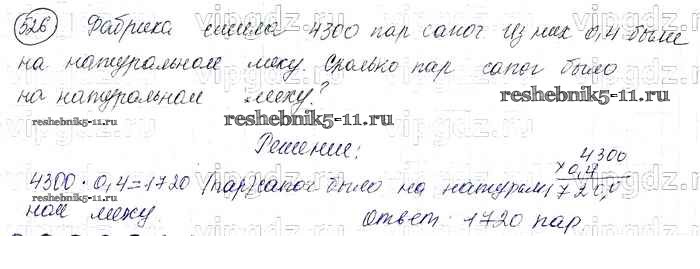 526 Фабрика сшила 4300 пар сапог Из них 0,4 были
на натуральном меху. Сколько пар сапог было
на натуральном меху?
reshebnik5-11.ru
reshebnik5-11.ru
Решение:
4300
× 0,4
1720,0
4300 · 0,4 = 1720 (пар) сапог было на натураль
ном меху.
reshebnik5-11.ru
Ответ: 1720 пар